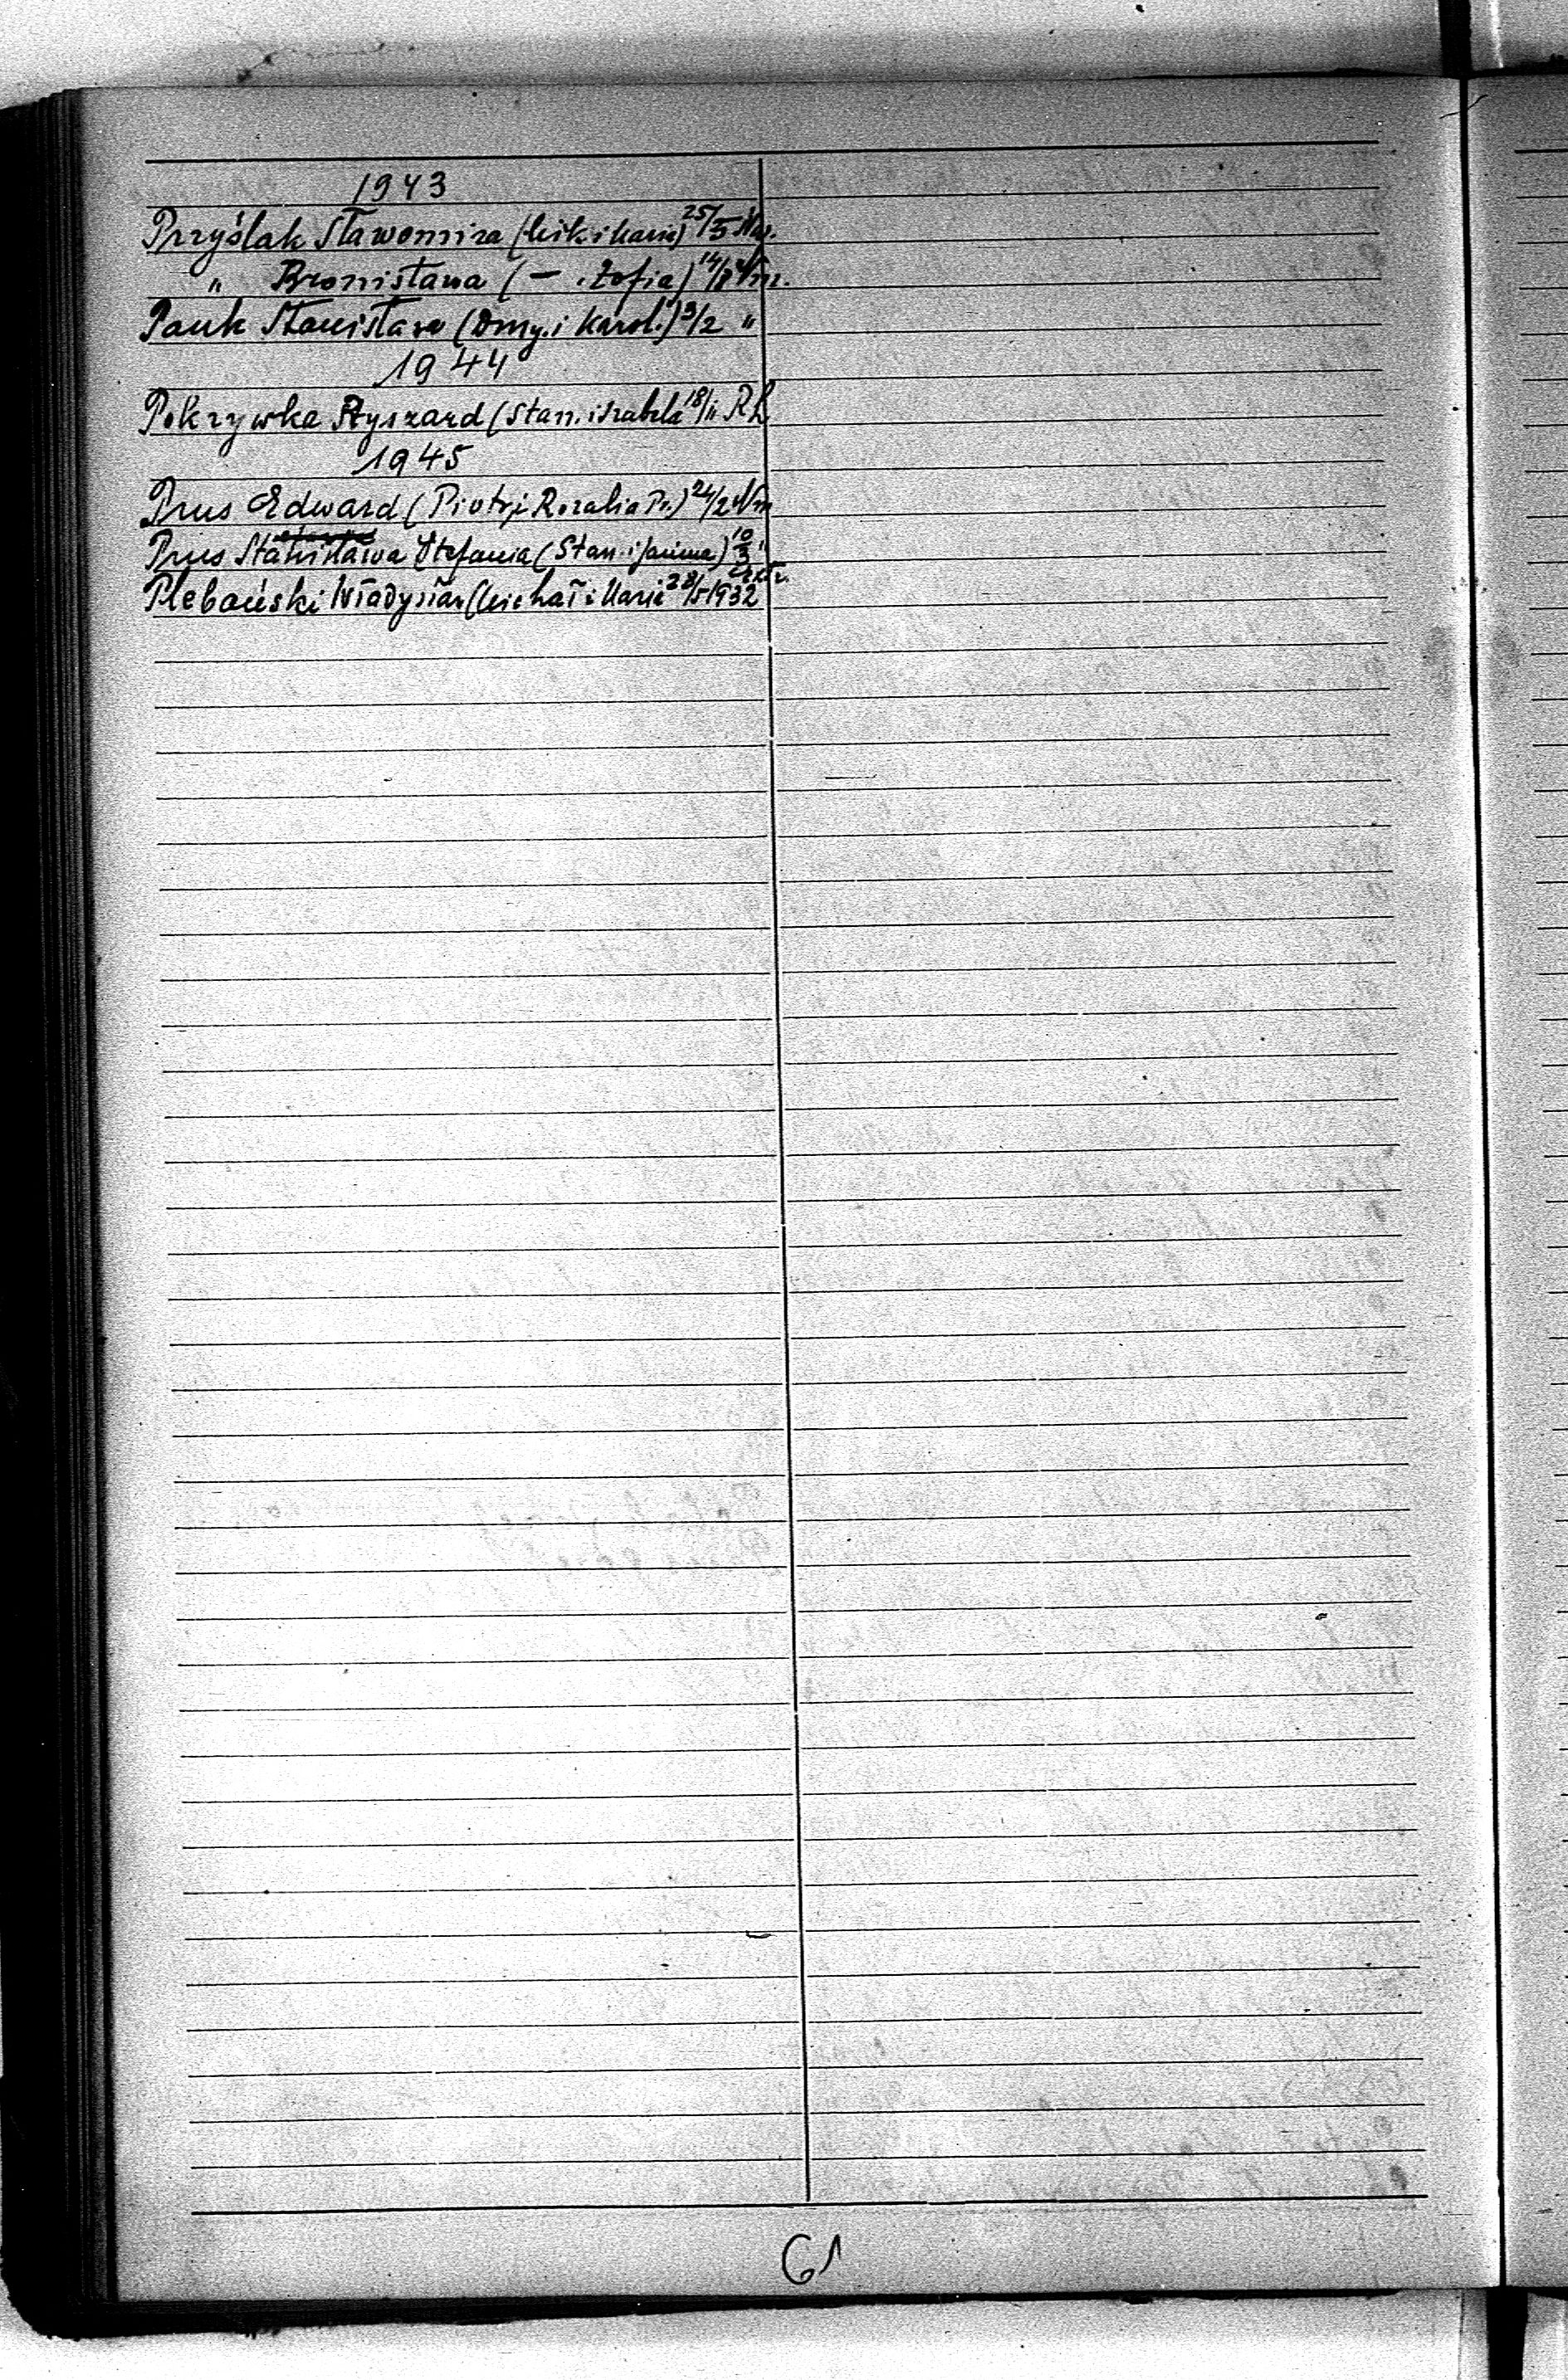 1943
Przyślak Sławomira (Mik. i Maria) 25/5 Nm.
" Bronisława (— i Zofia) 14/ Nm.
Pauk Stanisława (Dmy. i Karol.) 3/2 "
1944
Pokrywka Ryszard (Stan. i Izabela 18/11 Rh
1945
Prus Edward (Piotr i Rozalia Pr.) 24/2 Nm
Prus Stanisława Stefania (Stan. i Janina) 10/3 "
Plebański Władysław (Michał i Maria 28/5 1932
61